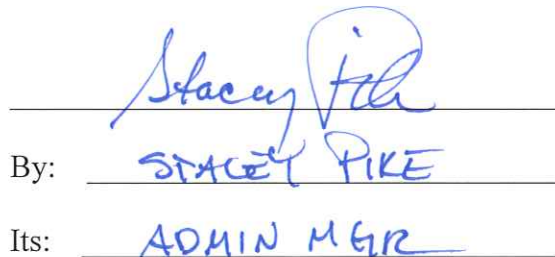 Stacey Pike
By: STACEY PIKE
Its: ADMIN MGR